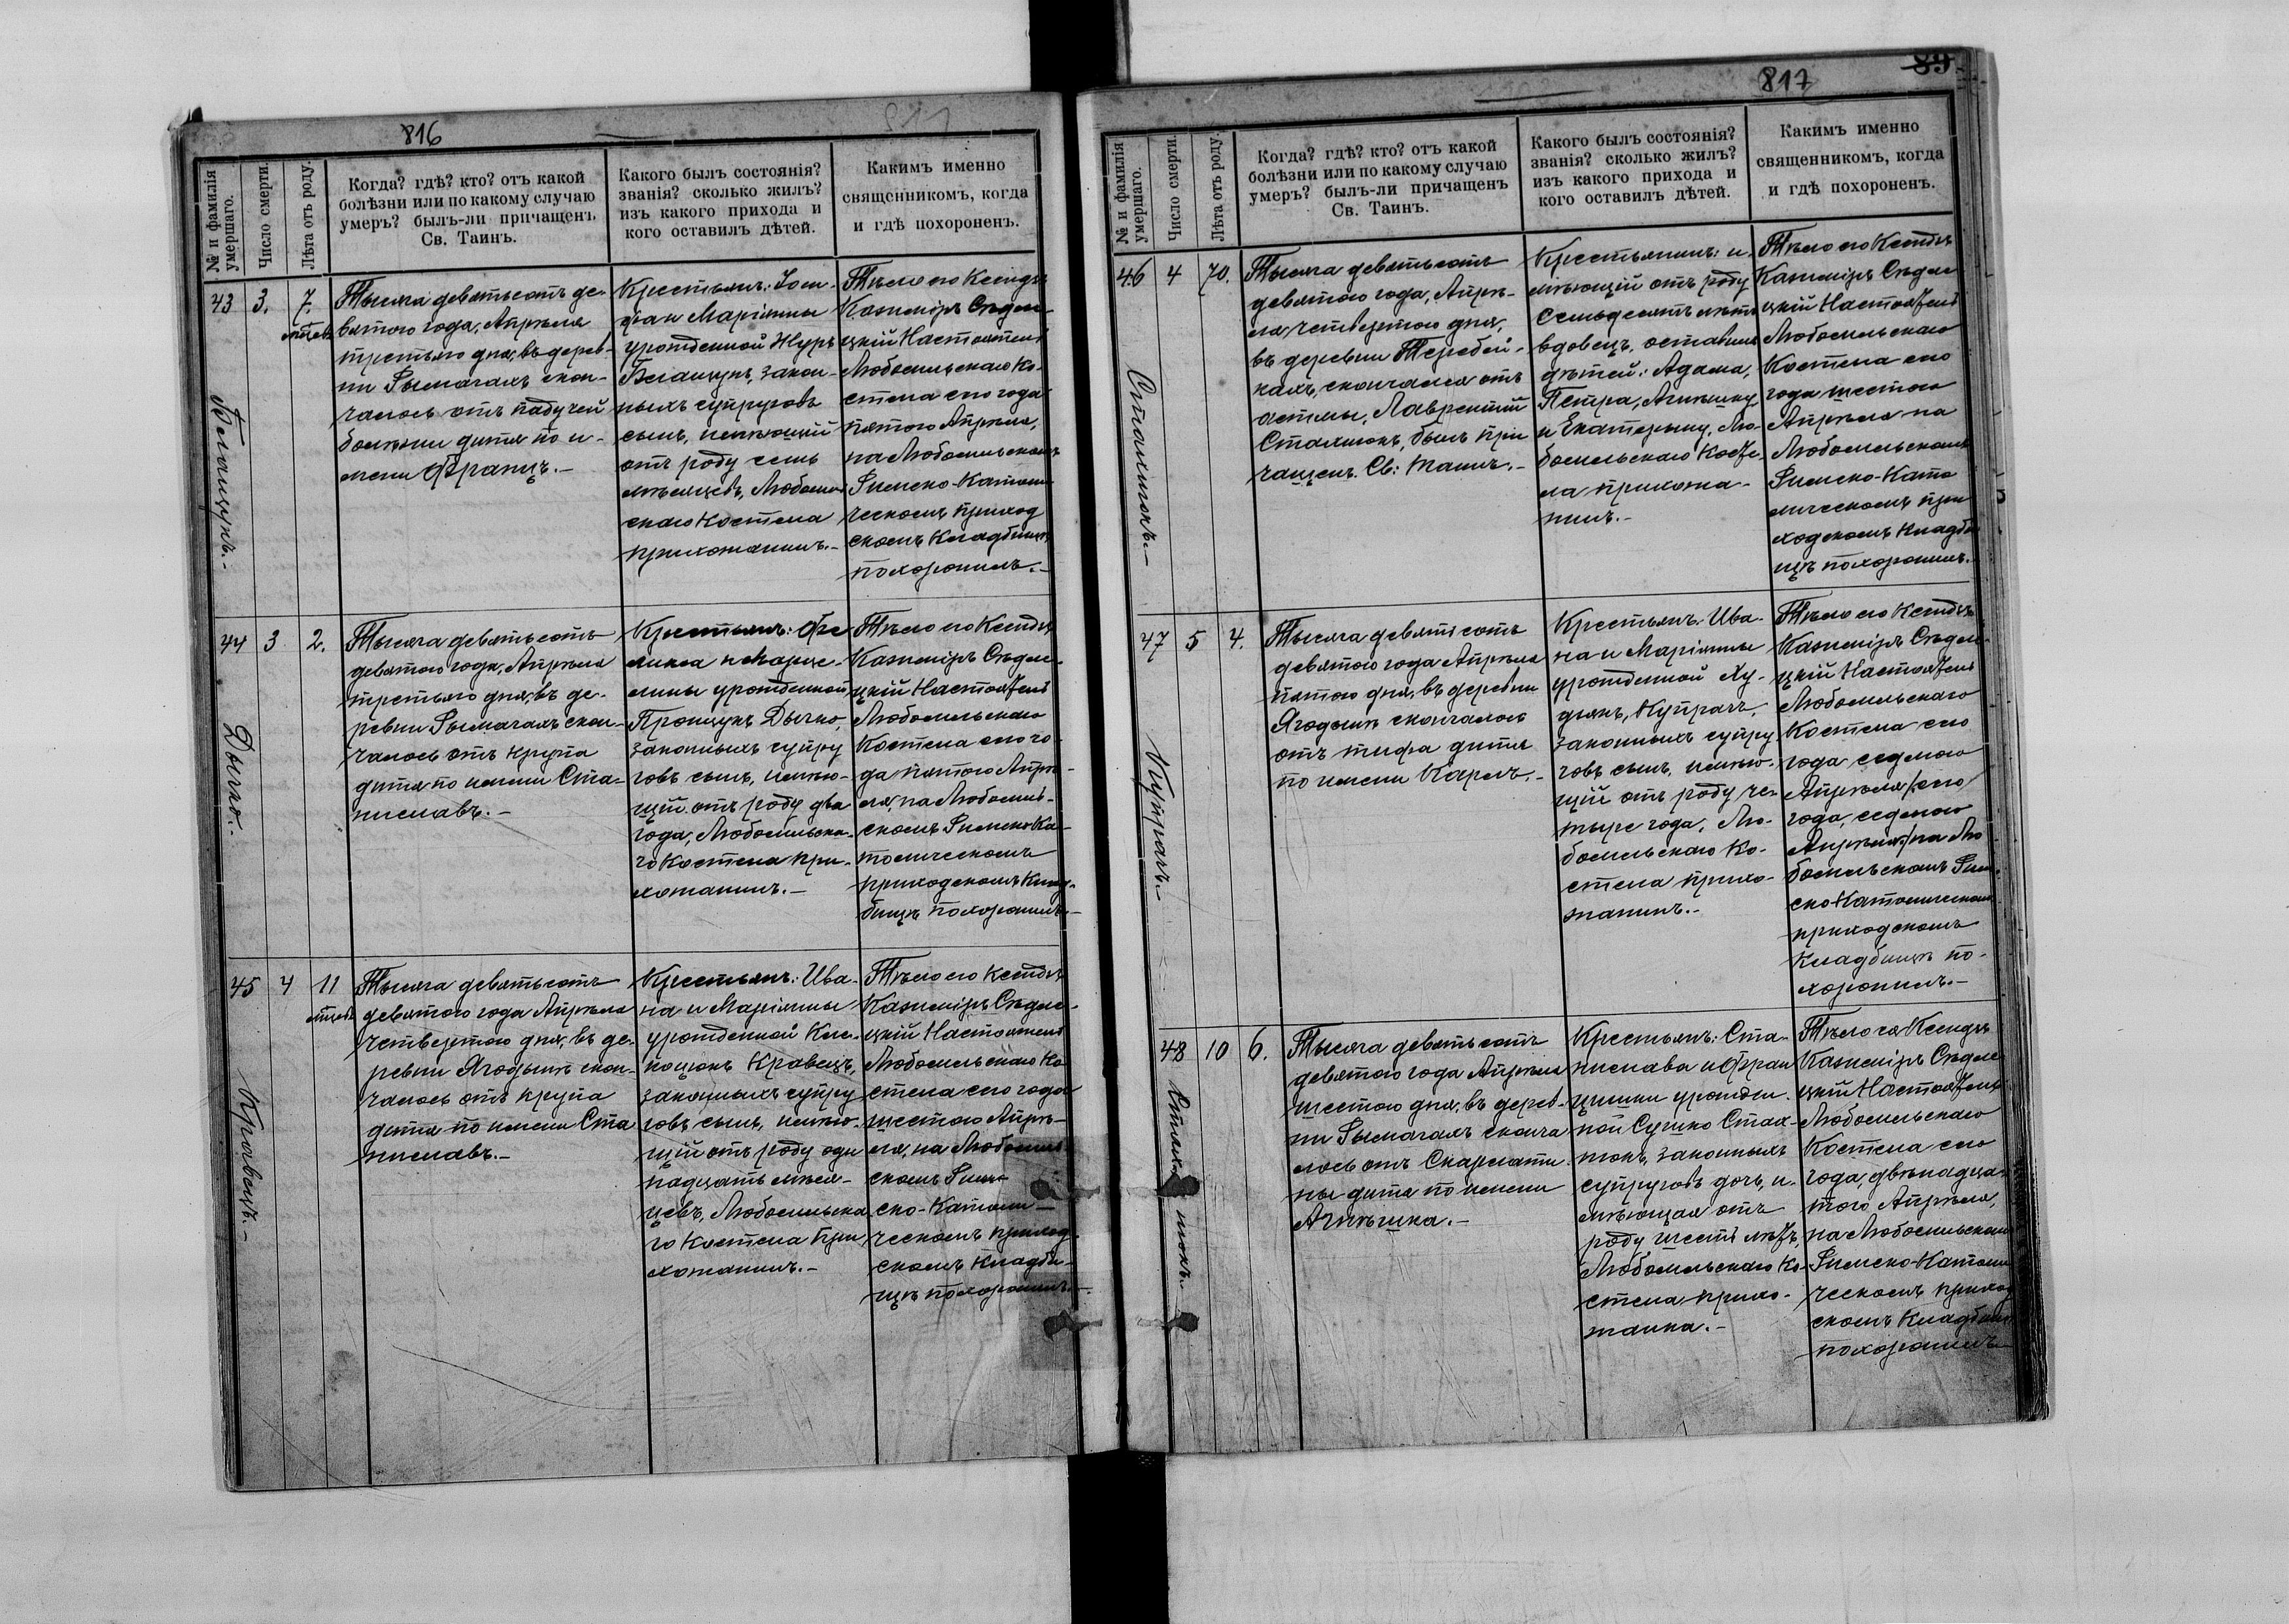 816
№ и фамилія
умершаго.
Число смерти.
Лѣта отъ роду.
Когда? гдѣ? кто? отъ какой
болѣзни или по какому случаю
умеръ? былъ-ли причащенъ
Св. Таинъ.
Какого былъ состоянія?
званія? сколько жилъ?
изъ какого прихода и
кого оставилъ дѣтей.
Какимъ именно
священникомъ, когда
и гдѣ похороненъ.
43
3.
7.
Тысяча девятьсотъ де-
вятого года, Апрѣля
третьяго дня, въ дерев-
ни Рымачахъ скон-
чалось отъ падучей
болѣзни дитя по и-
мени Францъ.-
Крестьянъ: Іоси-
фа и Маріянны
урожденной
законныхъ супруговъ
сынъ, имѣющій
отъ роду семь
мѣсяцевъ, Любомль-
скаго Костела
прихожанинъ.-
Тѣло его Ксендзъ
Казиміръ Сѣдле-
цкій Настоятель
Любомльскаго Ко-
стела сего года
пятого Апрѣля,
на Любомльскомъ
Римско-Католи-
ческомъ приход
скомъ Кладбищѣ
похоронилъ.-
44
3
2.
Дычко.
Тысяча девятьсотъ
девятого года, Апрѣля
третьяго дня, въ де-
ревни Рымачахъ скон-
чалось отъ крупа
дитя по имени Ста-
ниславъ.-
Крестьянъ: Фе
ликса и Марце-
лины урожденной
Пронцукъ Дычко,
законныхъ супру
говъ сынъ, имѣю-
щій отъ роду два
года, Любомльска-
го Костела при-
хожанинъ.-
Тѣло его Ксендзъ
Казиміръ Сѣдле-
цкій Настоятель
Любомльскаго
Костела сего го-
да пятого Апрѣ-
ля, на Любомль-
скомъ Римско-Ка-
толическомъ
приходскомъ Клад-
бищѣ похоронилъ.-
45
4
11
Кравецъ.-
Тысяча девятьсотъ
девятого года Апрѣля
четвертого дня, въ де-
ревни Ягодынѣ скон-
чалось отъ крупа
дитя по имени Ста
ниславъ.-
Крестьянъ: Ива-
на и Маріянны
урожденной
Кравецъ,
законныхъ супру
говъ сынъ, имѣю-
щій отъ роду оди
надцать мѣся-
цевъ, Любомльска
го Костела при
хожанинъ.-
Тѣло его Ксендзъ
Казиміръ Сѣдле-
цкій Настоятель
Любомльскаго Ко
стела сего года
шестого Апрѣ-
ля, на Любомль
скомъ Рим
ско-Католи-
ческомъ приход
скомъ Кладби-
щѣ похоронилъ.-
817
89
№ и фамилія
умершаго.
Число смерти.
Лѣта отъ роду.
Когда? гдѣ? кто? отъ какой
болѣзни или по какому случаю
умеръ? былъ-ли причащенъ
Св. Таинъ.
Какого былъ состоянія?
званія? сколько жилъ?
изъ какого прихода и
кого оставилъ дѣтей.
Какимъ именно
священникомъ, когда
и гдѣ похороненъ.
46
4
70.
Тысяча девятьсотъ
девятого года, Апрѣ-
ля четвертого дня,
въ деревни Теребей-
кахъ, скончался отъ
астмы, Лаврентій
былъ при
чащенъ Св: Таинъ.-
Крестьянинъ: и-
мѣющій отъ роду
семьдесятъ лѣтъ
вдовецъ, оставилъ
дѣтей: Адама,
Петра, Агнѣшку
и Екатерину, Лю-
бомльскаго Косте-
ла прихожа-
нинъ.-
Тѣло его Ксендзъ
Казиміръ Сѣдле
цкій Настоятель
Любомльскаго
Костела сего
года шестого
Апрѣля на
Любомльскомъ
Римско-Като
лическомъ при
ходскомъ Кладби
щѣ похоронилъ.-
47
5
4.
Купрачъ.-
Тысяча девятьсотъ
девятого года Апрѣля
пятого дня, въ деревни
Ягодынѣ скончалось
отъ тифа дитя
по имени Карлъ.-
Крестьянъ: Ива-
на и Маріянны
урожденной Ху-
дякъ, Купрачъ,
законныхъ супру
говъ сынъ, имѣю-
щій отъ роду че-
тыре года, Лю-
бомльскаго Ко-
стела прихо-
жанинъ.-
Тѣло его Ксендзъ
Казиміръ Сѣдле-
цкій Настоятель
Любомльскаго
Костела сего
года седмого
Апрѣля /сего
года, седмого
Апрѣля/ на Лю
бомльскомъ Рим-
ско-Католическомъ
приходскомъ
Кладбищѣ по-
хоронилъ.-
48
10
6.
Тысяча девятьсотъ
девятого года Апрѣля
шестого дня, въ дерев-
ни Рымачахъ сконча
лось отъ Скарлати-
ны дитя по имени
Агнѣшка.-
Крестьянъ: Ста-
нислава и Фран
цишки урожден-
ной Сушко
законныхъ
супруговъ дочь, и-
мѣющая отъ
роду шесть лѣтъ,
Любомльскаго Ко-
стела прихо-
жанка.-
Тѣло ея Ксендзъ
Казиміръ Сѣдле
цкій Настоятель
Любомльскаго
Костела сего
года, двѣнадца-
того Апрѣля,
на Любомльскомъ
Римско-Католи
ческомъ приход
скомъ Кладбищѣ
похоронилъ.-